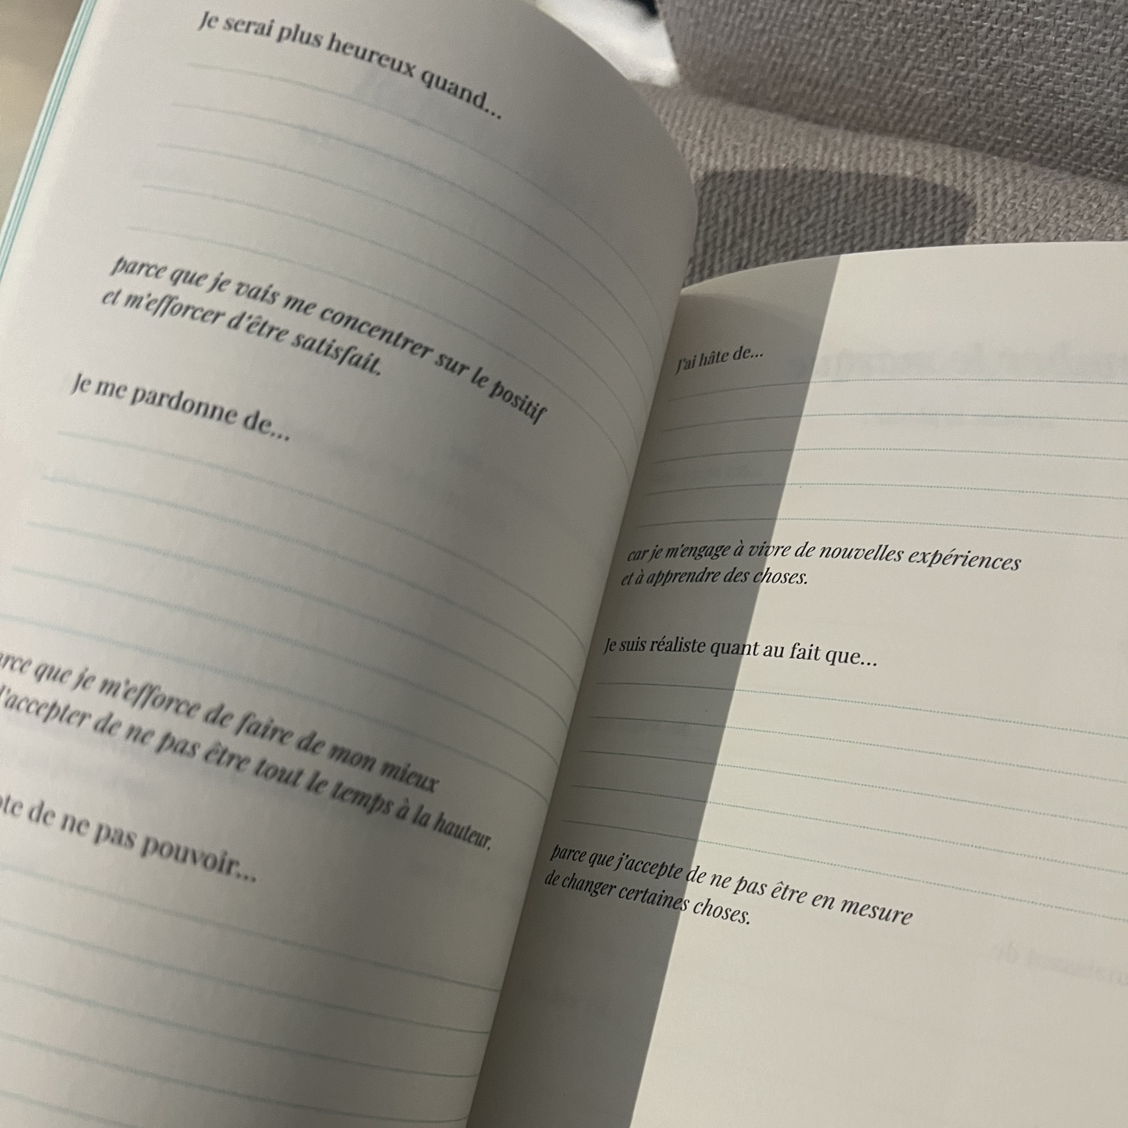 Je serai plus heureux quand...
parce que je vais me concentrer sur le positif
et m'efforcer d'être satisfait.
Je me pardonne de...
que je m'efforce de faire de mon mieux
d'accepter de ne pas être tout le temps à la hauteur.
de ne pas pouvoir...
J'ai hâte de...
car je m'engage à vivre de nouvelles expériences
et à apprendre des choses.
Je suis réaliste quant au fait que...
parce que j'accepte de ne pas être en mesure
de changer certaines choses.